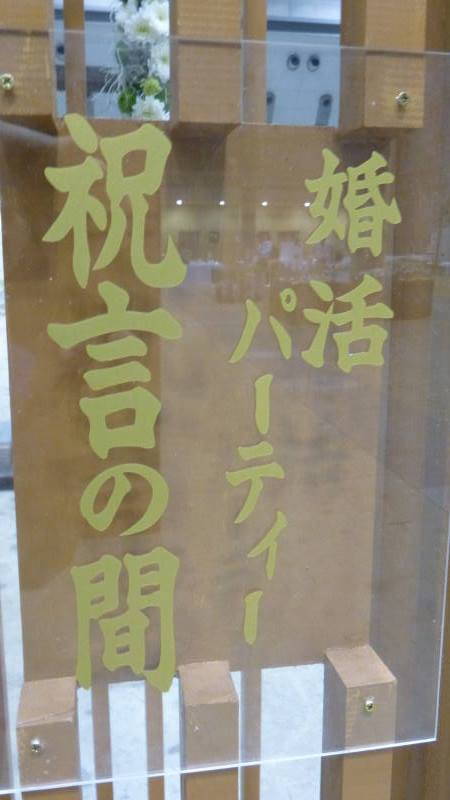 婚活
パーティー
祝言の間